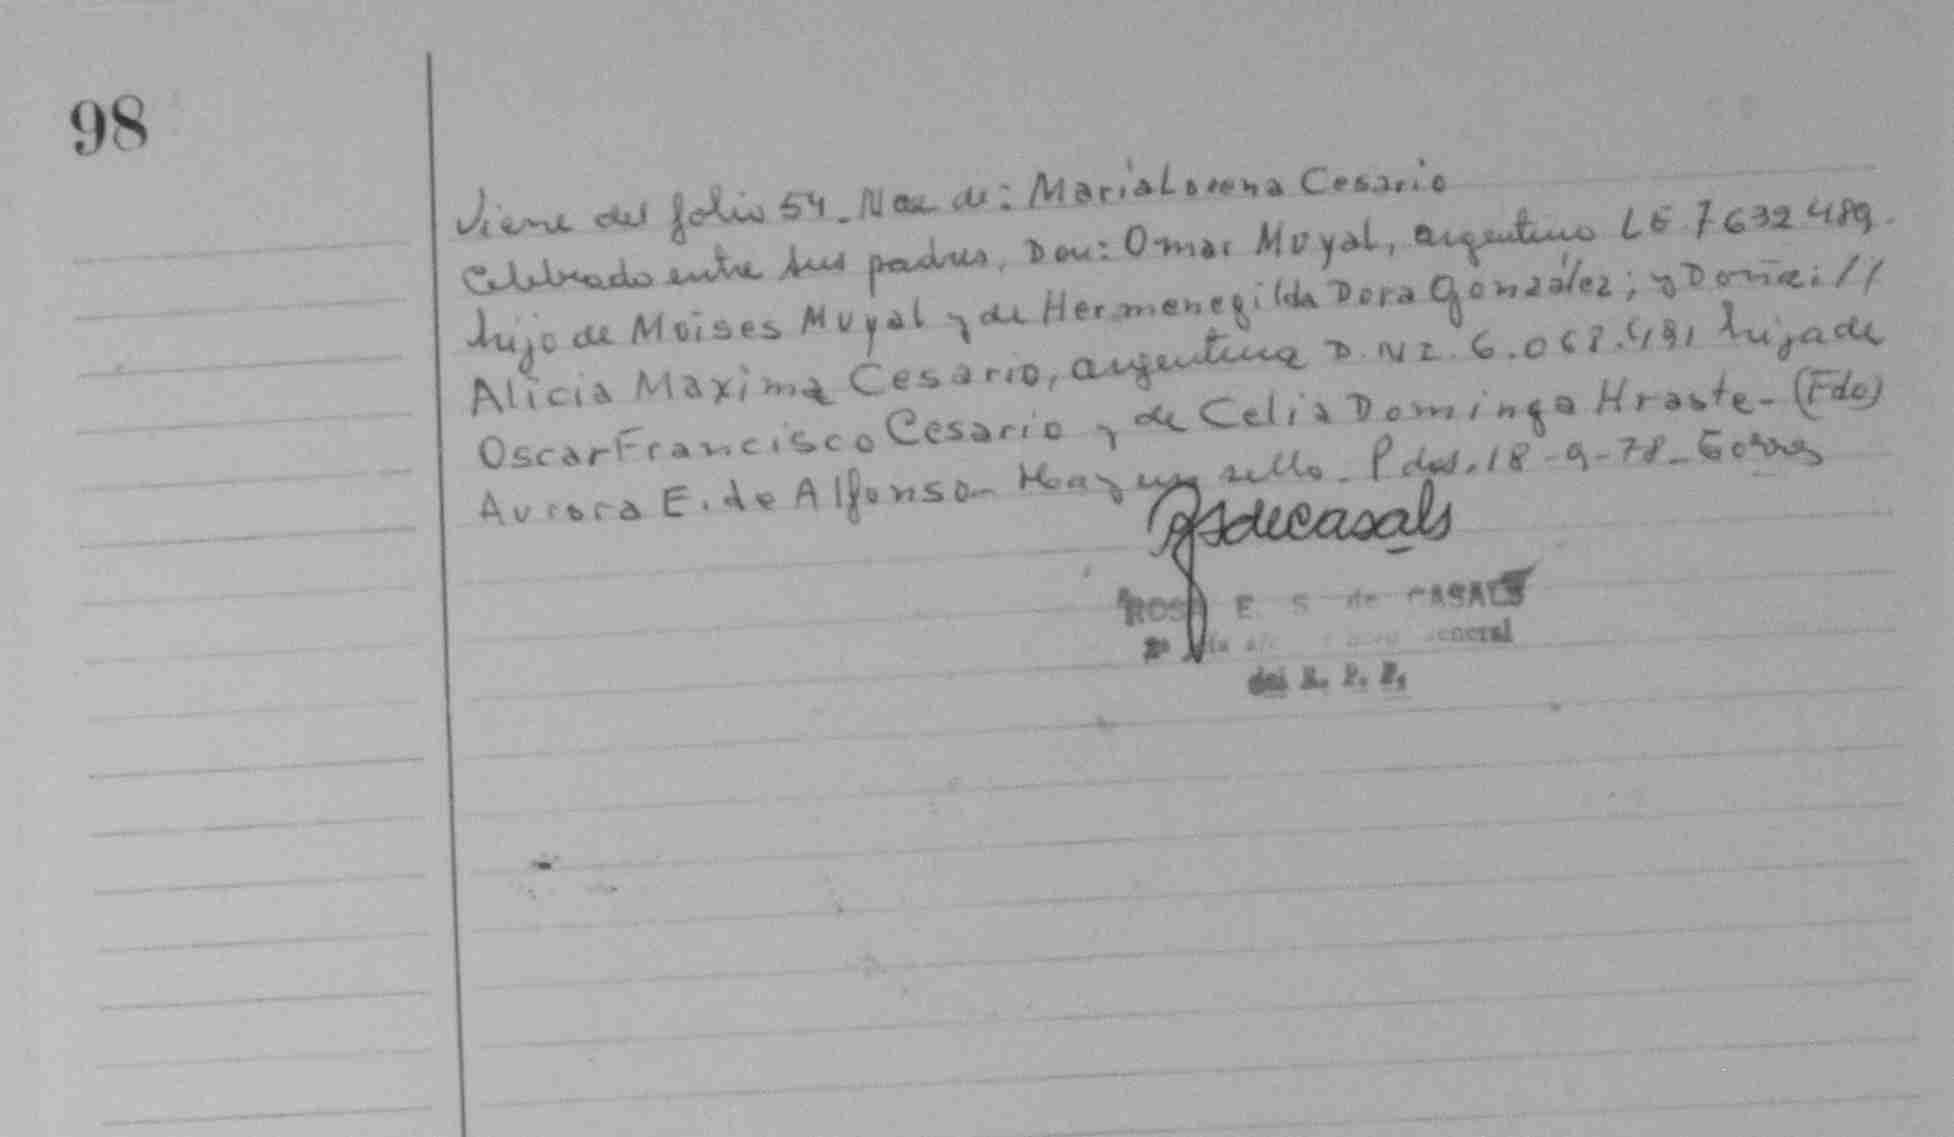 98
Viene del folio 54_ Nac de: Maria Lorena Cesario
Celebrado entre sus padres, Don: Omar Muyal, argentino LE 7632489.
hijo de Moises Muyal y de Hermenegilda Dora González; y Doña: //
Alicia Maxima Cesario, argentina D.NI. 6.068.491 hija de
Oscar Francisco Cesario y de Celia Dominga Hraste-(Fdo)
Aurora E. de Alfonso- Hay un sello_ Pdas. 18-9-78_
RSdecasals
ROSA E. S. de CASALS
General
del R. P. P.